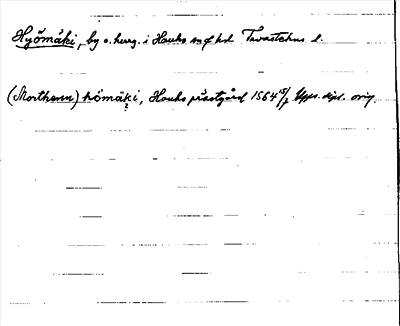 Hyömäki, by o. herrg. i Hauho sn o hd Tavastehus l.
(Morthenn) hömäki, Hauho prästgård 1564 15/7 Upps. dipl. orig.